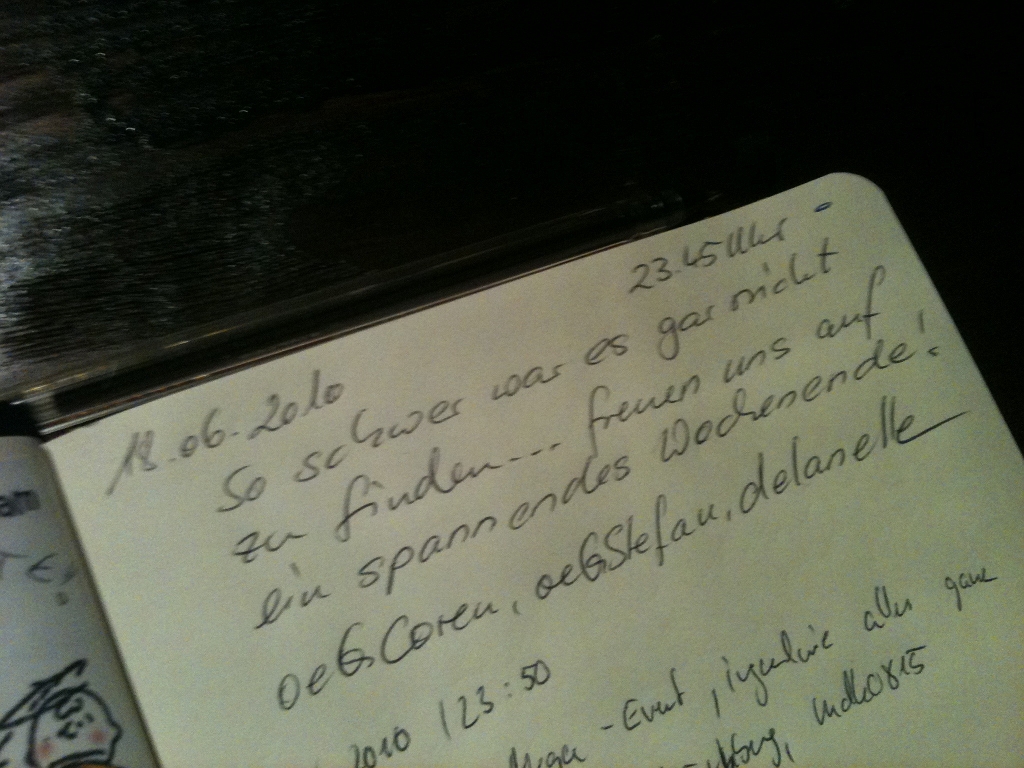 23.45 Uhr -
18.06.2010
So schwer war es gar nicht
zu finden... freuen uns auf
ein spannendes Wochenende!
oeGCoren, oeGStefan, delanelle
2010 / 23:50
-Event, irgendwie alles ganz